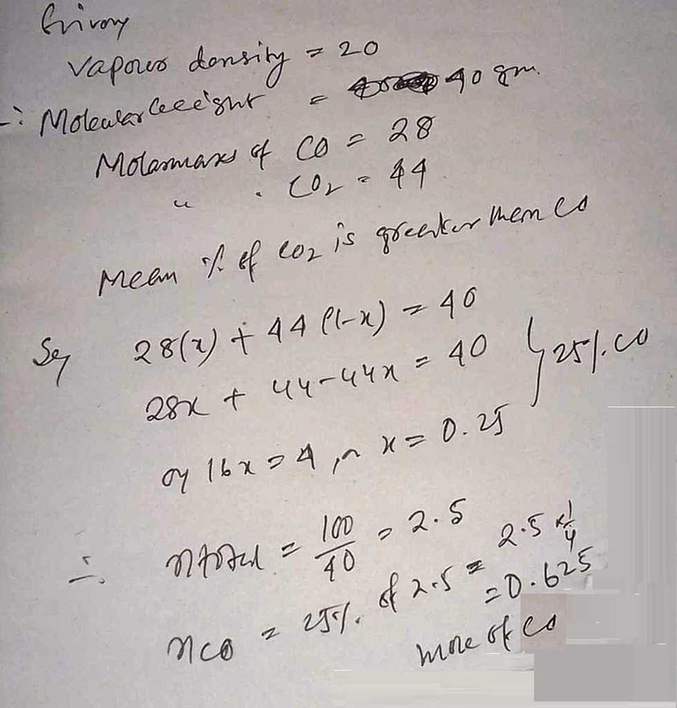 Givony
Vapour density = 20
∴ Molecular weight = 40 gm.
Molarmass of CO = 28
" " CO2 = 44
Mean % of CO2 is greater then CO
28(x) + 44(1-x) = 40
28x + 44-44x = 40 } 25% CO
or 16x = 4, x = 0.25
∴ ntotal = 100/40 = 2.5
nco = 25% of 2.5 = 2.5 x 1/4
= 0.625
mole of CO